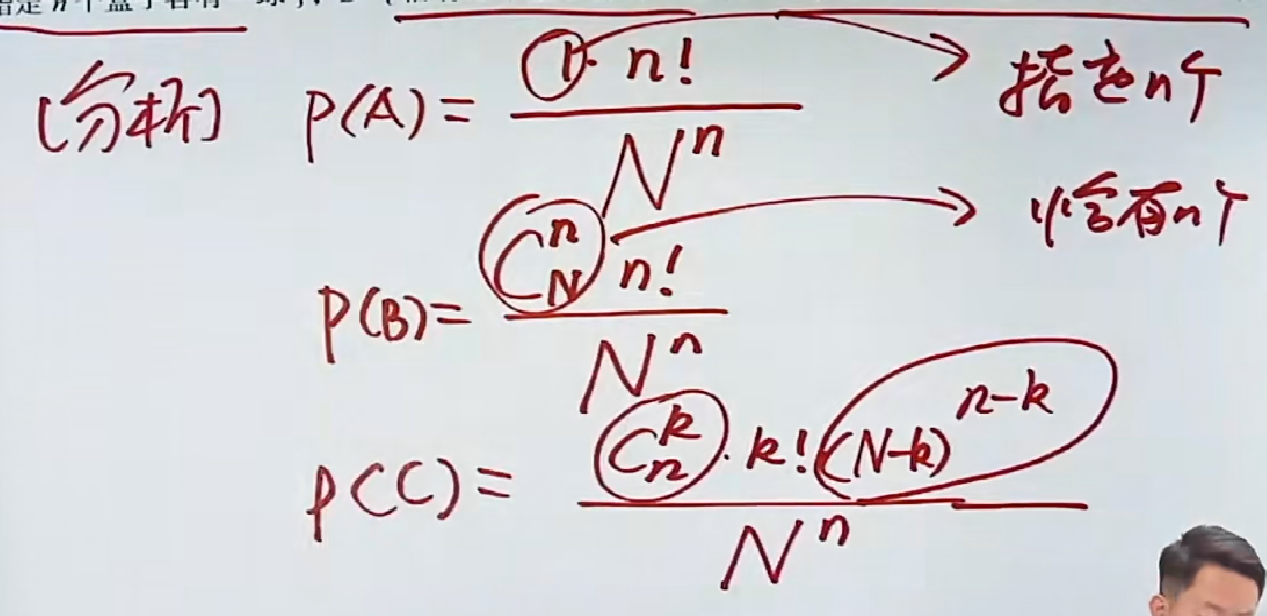 指定n个盒子各有
[分析] P(A) = 1·n! / N^n → 指定n个
P(B) = C_N^n n! / N^n → 恰有n个
P(C) = C_n^k · k! (N-k)^{n-k} / N^n